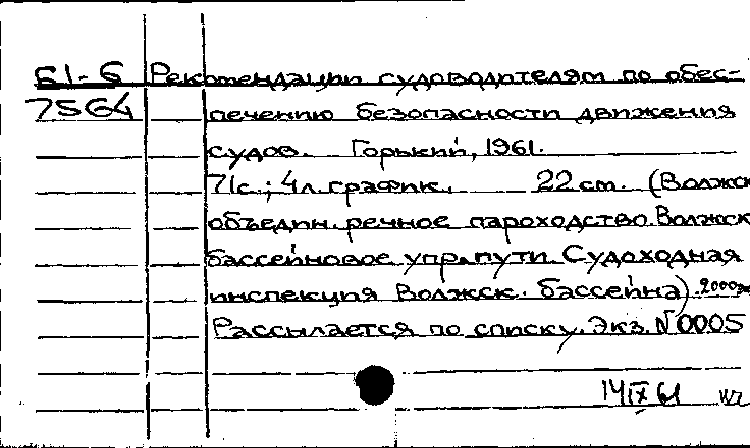 61-6 Рекомендации судоводителям по обес-
7564 печению безопасности движения
судов. Горький, 1961.
71с.; 4л. график. 22 cm. (Волжск
объедин. речное пароходство. Волжск
бассейновое упр. пути. Судоходная
инспекция Волжск. бассейна). 2000э
Рассылается по списку. Экз. N 0005
14 IX 61